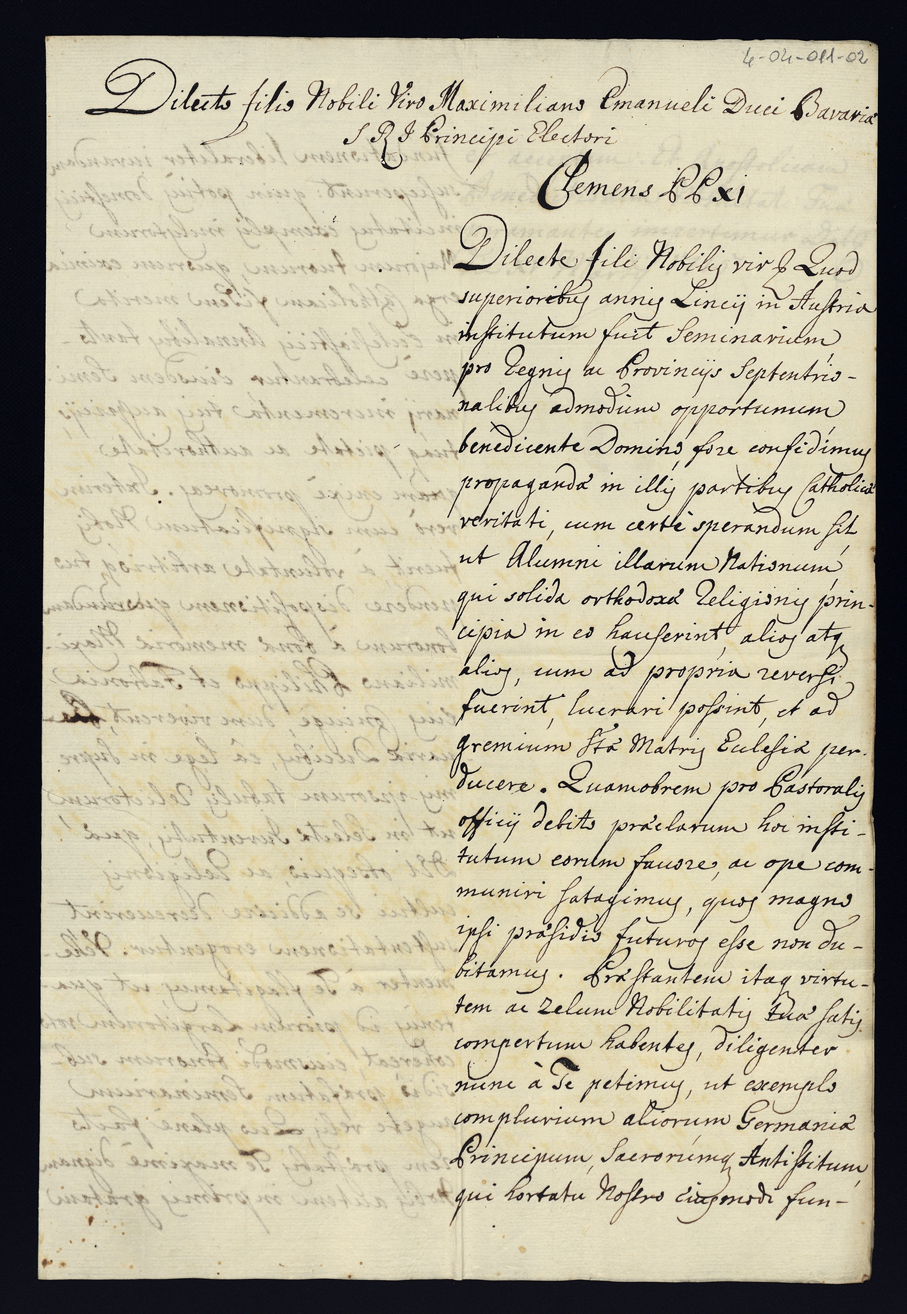 4-04-011-02
Dilecto filio Nobili Viro Maximiliano Emanueli Duci Bavariæ
S R J Principi Electori
Clemens PP XI
Dilecte fili Nobilis vir &. Quod
superioribus annis Lincij in Austria
institutum fuit Seminarium
pro Regnis ac Provincijs Septentrio-
nalibus admodum opportunum
benedicente Domino fore confidimus
propagandæ in illis partibus Catholicæ
veritati, cum certè sperandum sit
ut Alumni illarum Nationum
qui solida orthodoxæ Religionis prin-
cipia in eo hauserint, alios atq
alios, cum ad propria reversi
fuerint, lucrari possint, et ad
gremium Stæ Matris Ecclesiæ per-
ducere. Quamobrem pro Pastoralis
officij debito præclarum hoc insti-
tutum eorum favore, ac ope com-
muniri satagimus, quos magno
ipsi præsidio futuros esse non du-
bitamus. Præstantem itaq virtu-
tem ac zelum Nobilitatis Tuæ satis
compertum habentes, diligenter
nunc à Te petimus, ut exemplo
complurium aliorum Germaniæ
Principum, Sacrorúmq Antistitum,
qui hortatu Nostro eiusmodi fun-